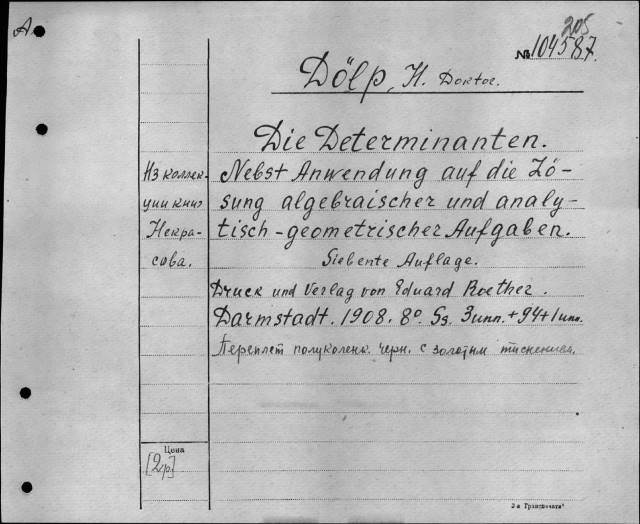 А
205
№ 104587.
Dölp, H. Doktor.
Die Determinanten.
Nebst Anwendung auf die Lö-
sung algebraischer und analy-
tisch-geometrischer Aufgaben.
Siebente Auflage.
Druck und Verlag von Eduard Roether.
Darmstadt. 1908. 8° Ss. 3 unn. + 94 + 1 unn.
Переплет полуколенк. черн. с золотым тиснением.
Из коллек-
ции книг
Некра-
сова.
Цена
[2р]